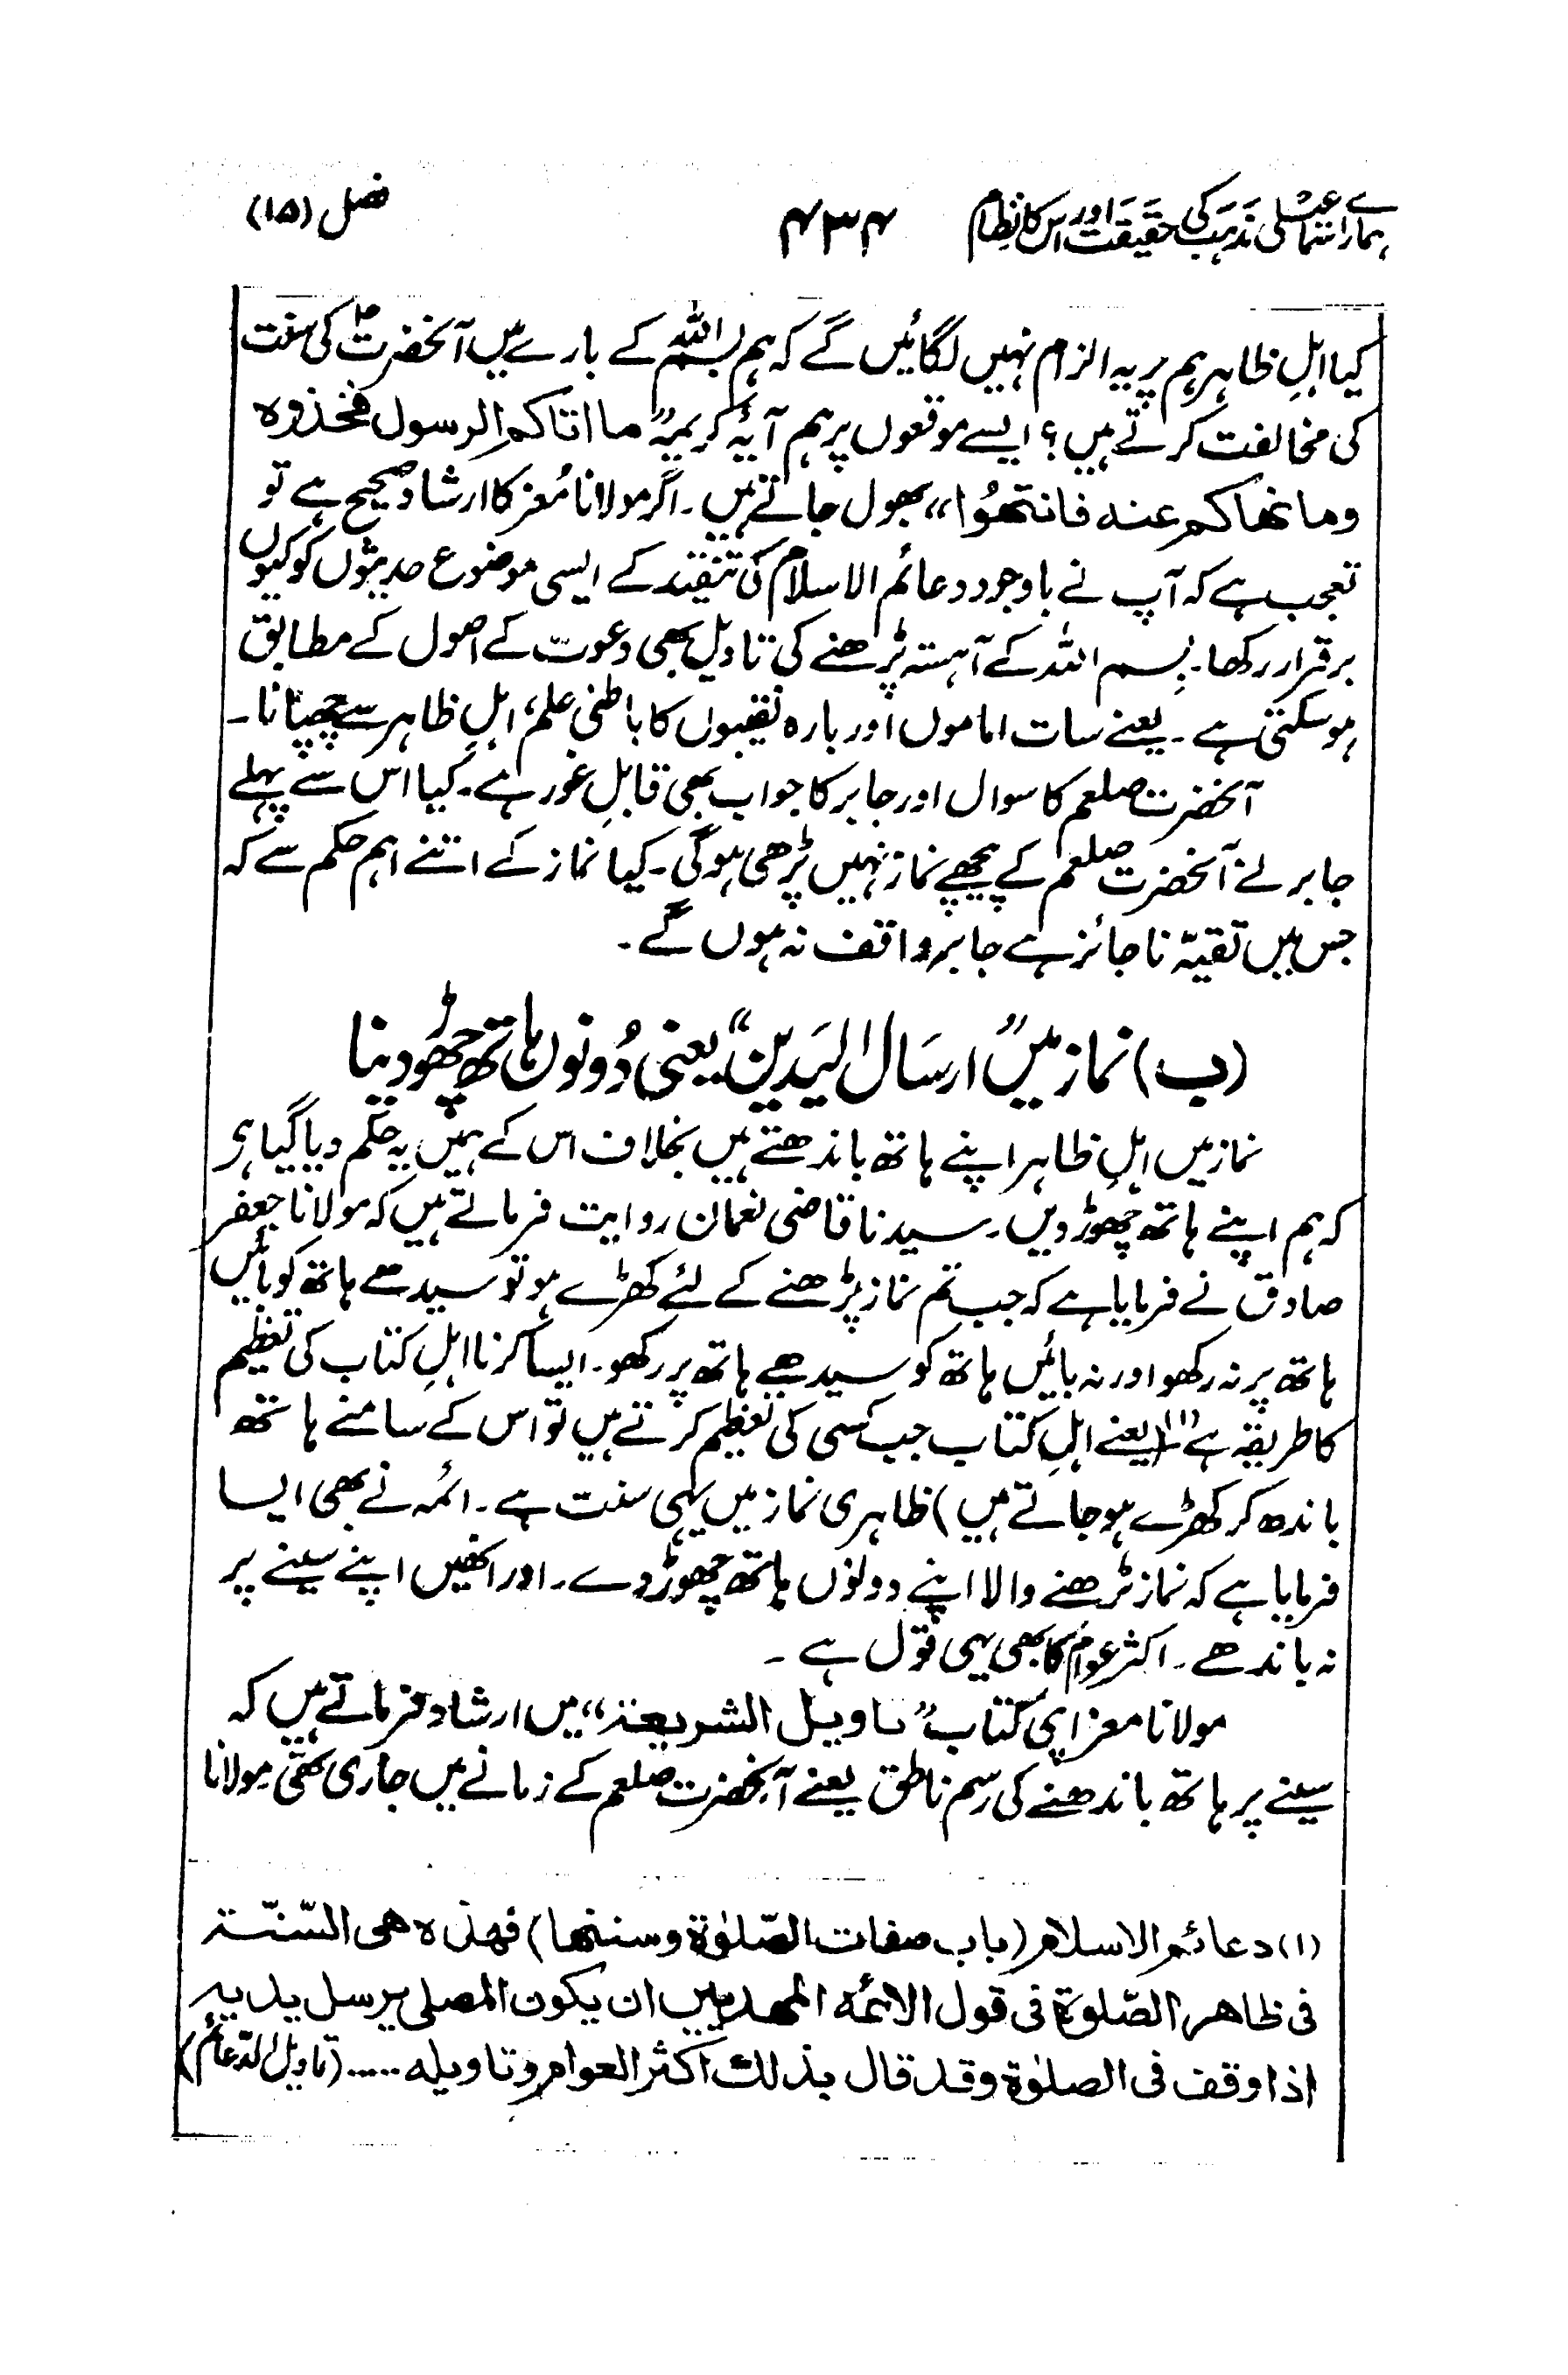 ہمارے اسماعیلی مذہب کی حقیقت اور اس کا نظام ۴۳۴ فصل (۱۵)
کیا اہلِ ظاہر ہم پر یہ الزام نہیں لگائیں گے کہ ہم بسم اللہ کے بارے میں آنحضرتؐ کی سنت
کی مخالفت کرتے ہیں؟ ایسے موقعوں پر ہم آیۂ کریمہ "ما اتاکم الرسول فخذوہ
وما نھاکم عنہ فانتھُوا" بھول جاتے ہیں۔ اگر مولانا مُعز کا ارشاد صحیح ہے تو
تعجب ہے کہ آپ نے باوجود دعائم الاسلام کی تنقید کے ایسی موضوع حدیثوں کو کیوں
برقرار رکھا۔ بِسم اللہ کے آہستہ پڑھنے کی تاویل بھی دعوت کے اصول کے مطابق
ہو سکتی ہے۔ یعنے سات اماموں اور بارہ نقیبوں کا باطنی علم، اہلِ ظاہر سے چھپانا۔
آنحضرت صلعم کا سوال اور جابر کا جواب بھی قابلِ غور ہے۔ کیا اس سے پہلے
جابر نے آنحضرت صلعم کے پیچھے نماز نہیں پڑھی ہوگی۔ کیا نماز کے اتنے اہم حکم سے کہ
جس میں تقیّہ ناجائز ہے جابر واقف نہ ہوں گے۔
(ب) نماز میں "ارسَال الیَدین" یعنی دُونوں ہاتھ چھوڑ دینا
نماز میں اہلِ ظاہر اپنے ہاتھ باندھتے ہیں بخلاف اس کے ہمیں یہ حکم دیا گیا ہی
کہ ہم اپنے ہاتھ چھوڑ دیں۔ سیدنا قاضی نعمان روایت فرماتے ہیں کہ مولانا جعفر
صادق نے فرمایا ہے کہ جب تم نماز پڑھنے کے لئے کھڑے ہو تو سیدھے ہاتھ کو بائیں
ہاتھ پر نہ رکھو اور نہ بائیں ہاتھ کو سیدھے ہاتھ پر رکھو۔ ایسا کرنا اہلِ کتاب کی تعظیم
کا طریقہ ہے (۱) (یعنے اہلِ کتاب جب کسی کی تعظیم کرتے ہیں تو اس کے سامنے ہاتھ
باندھ کر کھڑے ہو جاتے ہیں) ظاہری نماز میں یہی سنت ہے۔ ائمہ نے بھی ایسا
فرمایا ہے کہ نماز پڑھنے والا اپنے دونوں ہاتھ چھوڑ دے۔ اور انھیں اپنے سینے پر
نہ باندھے۔ اکثر عوام کا بھی یہی قول ہے۔
مولانا معز اپنی کتاب "تاویل الشریعۃ" میں ارشاد فرماتے ہیں کہ
سینے پر ہاتھ باندھنے کی رسم ناطق یعنے آنحضرت صلعم کے زمانے میں جاری تھی مولانا
(۱) دعائم الاسلام (باب صفات الصّلوٰۃ وسننھا) فھذہ ھی السّنّۃ
فی ظاھر الصّلوۃ فی قول الائمہ المھدیین ان یکون المصلی یرسل یدیہ
اذا وقف فی الصلوٰۃ وقد قال بذلک اکثر العوام وتاویلہ ..... (تاویل الدّعائم)